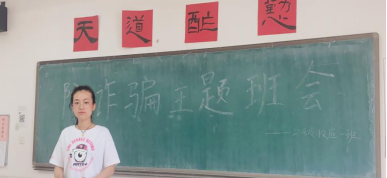 天道酬勤
防诈骗主题班会